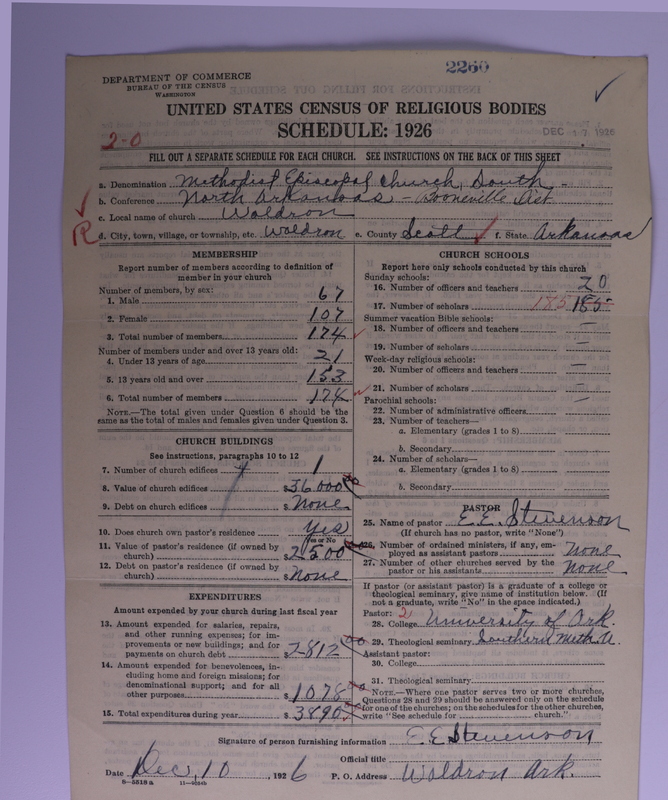 2260
DEPARTMENT OF COMMERCE
BUREAU OF THE CENSUS
WASHINGTON
UNITED STATES CENSUS OF RELIGIOUS BODIES
SCHEDULE: 1926
DEC 17 1926
2-0
FILL OUT A SEPARATE SCHEDULE FOR EACH CHURCH. SEE INSTRUCTIONS ON THE BACK OF THIS SHEET
a. Denomination Methodist Episcopal Church, South -
b. Conference North Arkansas - Booneville Dist.
c. Local name of church Waldron
R d. City, town, village, or township, etc. Waldron e. County Scott f. State Arkansas
MEMBERSHIP
Report number of members according to definition of
member in your church
Number of members, by sex:
1. Male 67
2. Female 107
3. Total number of members 174
Number of members under and over 13 years old:
4. Under 13 years of age 21
5. 13 years old and over 153
6. Total number of members 174
NOTE.—The total given under Question 6 should be the
same as the total of males and females given under Question 3.
CHURCH BUILDINGS
See instructions, paragraphs 10 to 12
7. Number of church edifices 1
8. Value of church edifices $36000 00
9. Debt on church edifices $None
10. Does church own pastor's residence Yes
(Yes or No)
11. Value of pastor's residence (if owned by
church) $2500 00
12. Debt on pastor's residence (if owned by
church) $None
EXPENDITURES
Amount expended by your church during last fiscal year
13. Amount expended for salaries, repairs,
and other running expenses; for im-
provements or new buildings; and for
payments on church debt $2812 00
14. Amount expended for benevolences, in-
cluding home and foreign missions; for
denominational support; and for all
other purposes $1078 00
15. Total expenditures during year $3890 00
CHURCH SCHOOLS
Report here only schools conducted by this church
Sunday schools:
16. Number of officers and teachers 20
17. Number of scholars 185 185
Summer vacation Bible schools:
18. Number of officers and teachers —
19. Number of scholars —
Week-day religious schools:
20. Number of officers and teachers —
21. Number of scholars —
Parochial schools: —
22. Number of administrative officers
23. Number of teachers—
a. Elementary (grades 1 to 8)
b. Secondary
24. Number of scholars—
a. Elementary (grades 1 to 8)
b. Secondary
PASTOR
25. Name of pastor E.E. Stevenson
(If church has no pastor, write "None")
26. Number of ordained ministers, if any, em-
ployed as assistant pastors None
27. Number of other churches served by the
pastor or his assistants None
If pastor (or assistant pastor) is a graduate of a college or
theological seminary, give name of institution below. (If
not a graduate, write "No" in the space indicated.)
Pastor: 2
28. College University of Ark.
29. Theological seminary Southern Meth. U.
Assistant pastor:
30. College
31. Theological seminary
NOTE.—Where one pastor serves two or more churches,
Questions 28 and 29 should be answered only on the schedule
for one of the churches; on the schedules for the other churches,
write "See schedule for church."
Signature of person furnishing information E.E. Stevenson
Official title
Date Dec, 10, 1926 P. O. Address Waldron Ark.
8—5518a